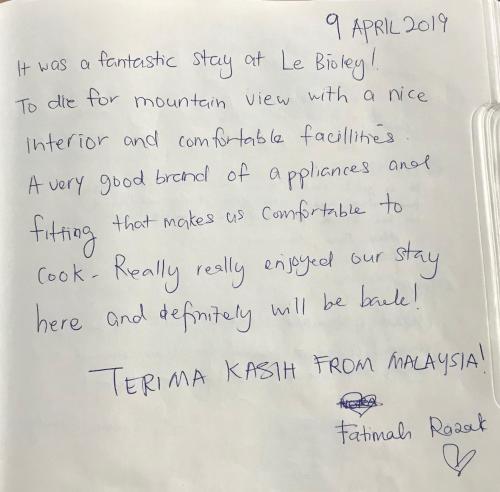 9 APRIL 2019
It was a fantastic stay at Le Bioley!
To die for mountain view with a nice
interior and comfortable facillities.
A very good brand of appliances and
fitting that makes us comfortable to
cook - Really really enjoyed our stay
here and definitely will be back!
TERIMA KASIH FROM MALAYSIA!
Fatimah Razak